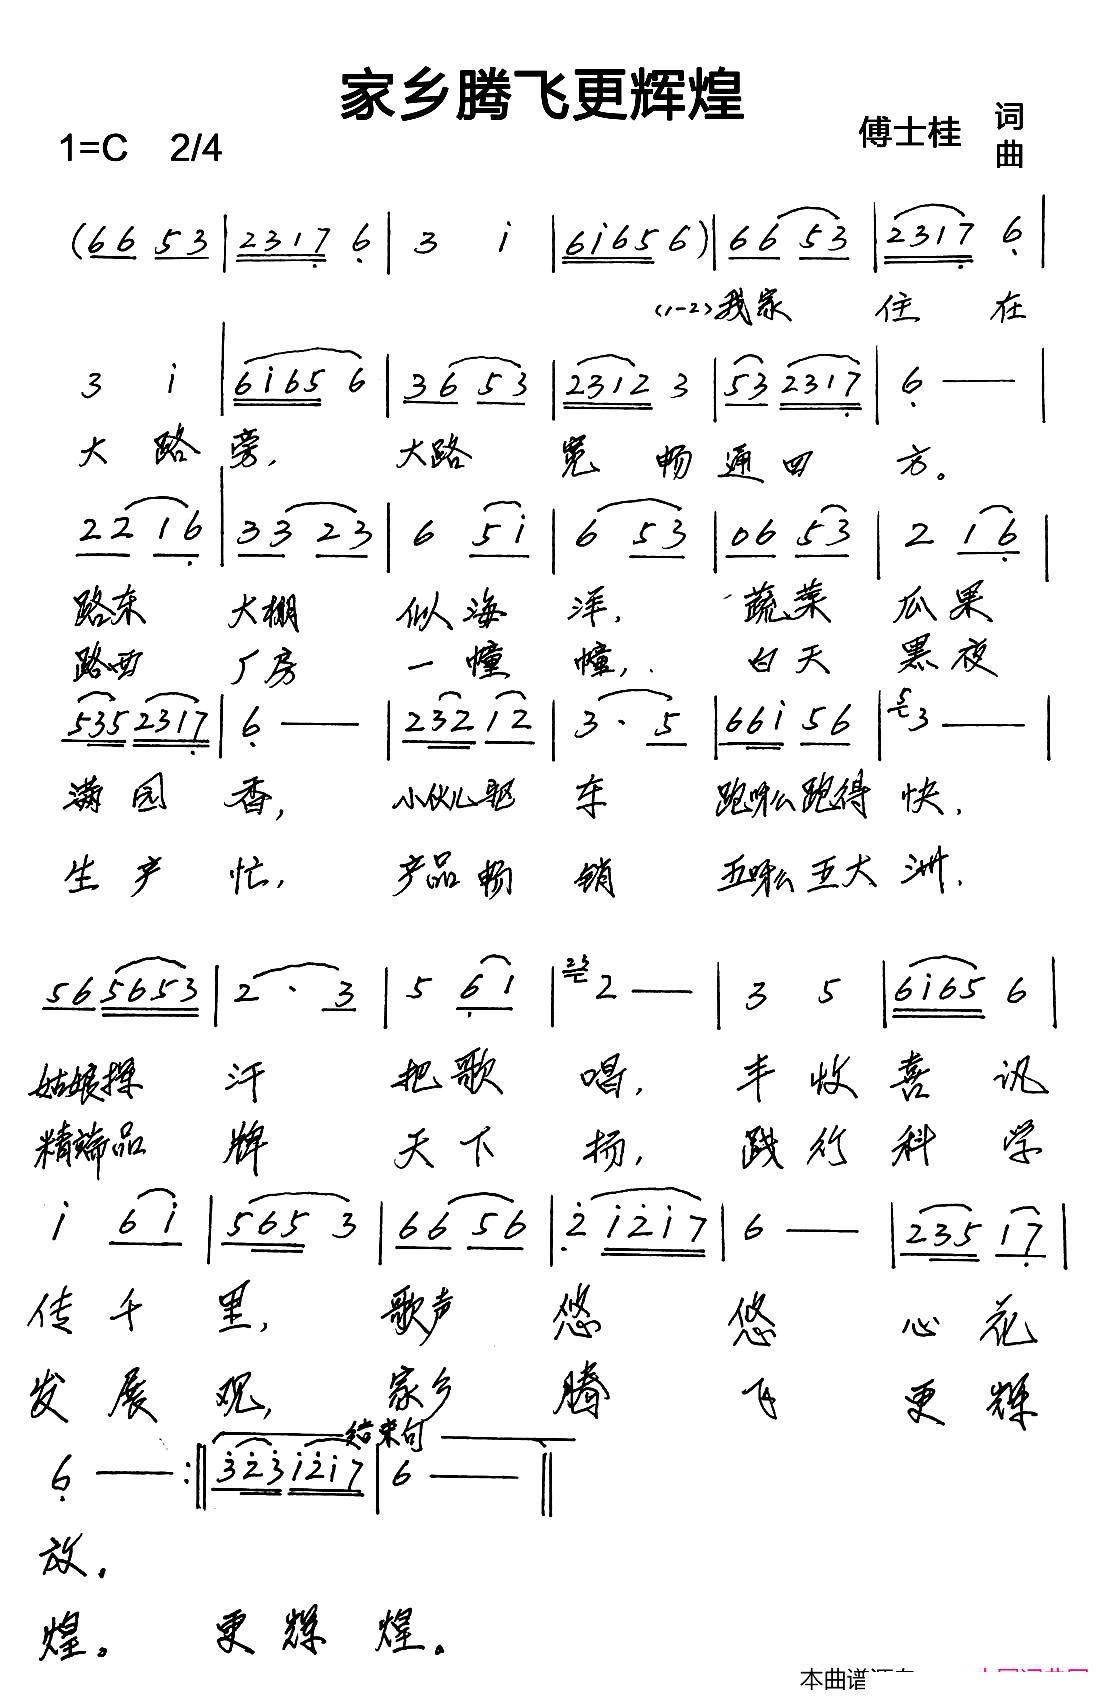 家乡腾飞更辉煌
1=C 2/4 傅士桂 词
曲
(66 53 | 2317 6 | 3 i | 6i65 6) | 66 53 | 2317 6 |
(1-2)我家 住 在
3 i | 6i65 6 | 36 53 | 2312 3 | 53 2317 | 6 — |
大 路 旁, 大路 宽 畅 通 四 方。
22 16 | 33 23 | 6 5i | 6 53 | 06 53 | 2 16 |
路东 大棚 似 海 洋, 蔬菜 瓜果
路西 厂房 一 幢 幢, 白天 黑夜
535 2317 | 6 — | 232 12 | 3 · 5 | 66i 56 | 5 3 — |
满 园 香, 小伙儿驱 车 跑呀么跑得 快,
生 产 忙, 产品畅 销 五呀么五大 洲,
56 5653 | 2 · 3 | 5 61 | 23 2 — | 3 5 | 6i65 6 |
姑娘擦 汗 把歌 唱, 丰 收 喜 讯
精端品 牌 天下 扬, 践 行 科 学
i 6i | 565 3 | 66 56 | 2 i2i7 | 6 — | 235 17 |
传 千 里, 歌声 悠 悠 心 花
发 展 观, 家乡 腾 飞 更 辉
结束句
6 — :|| 323 i2i7 | 6 — ||
放.
煌。 更 辉 煌.
本曲谱源自